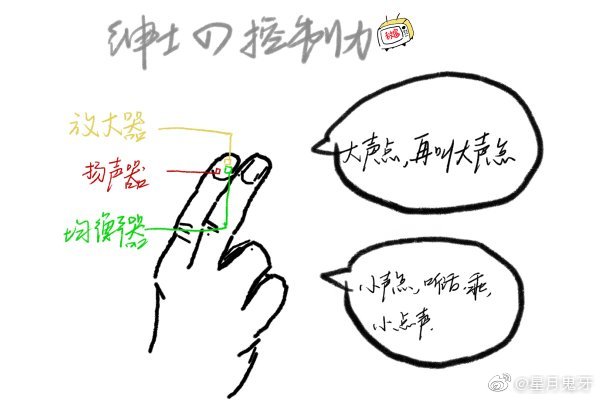 绅士の控制力
放大器
扬声器
均衡器
大声点,再叫大声点
小声点,啊,乖,
小点声.
@星月鬼牙